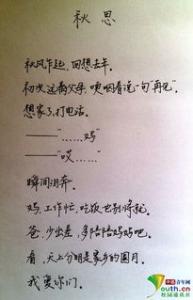 秋思
秋风乍起，回想去年。
初次远离父母，哽咽着说一句"再见"。
想家了，打电话。
——"……妈"
——"哎……"
瞬间泪奔。
妈，工作忙，吃饭也别将就。
爸，少出差，多陪陪妈妈吧。
看，天上分明是家乡的圆月。
我爱你们。
中国青年网
youth.cn